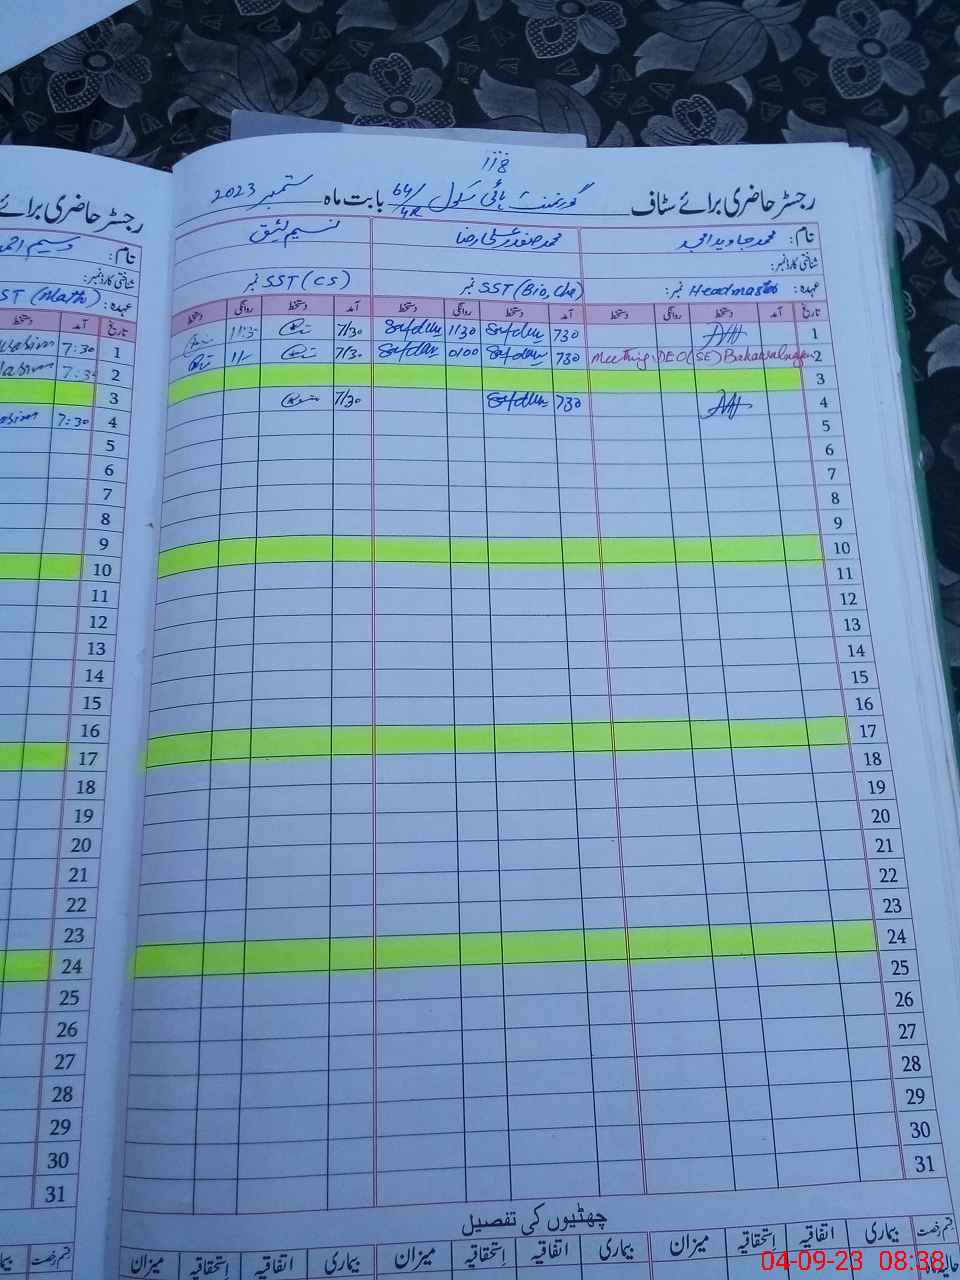 118
رجسٹر حاضری برائے سٹاف گورنمنٹ ہائی سکول 64/4R بابت ماہ ستمبر 2023
رجسٹر حاضری برائے
نام: محمد جاوید امجد محمد صفدر علی رضا نسیم لئیق
نام: وسیم احمد
شناختی کارڈ نمبر:
شناختی کارڈ نمبر:
عہدہ: Headmaster نمبر: SST (Bio, Che) نمبر SST (CS) نمبر
عہدہ: SST (Math)
تاریخ آمد دستخط روانگی دستخط آمد دستخط روانگی دستخط آمد دستخط روانگی دستخط
تاریخ آمد دستخط
1 730 Safdar 1130 Safdar 7/30 11:3
1 7:30 Wasim
2 Meeting DEO (SE) Bahawalnagar 730 Safdar 0100 Safdar 7/30 11/-
2 7:3 Wasim
3
3
4 730 Safdar 7/30
4 7:30 Wasim
5
5
6
6
7
7
8
8
9
9
10
10
11
11
12
12
13
13
14
14
15
15
16
16
17
17
18
18
19
19
20
20
21
21
22
22
23
23
24
24
25
25
26
26
27
27
28
28
29
29
30
30
31
31
چھٹیوں کی تفصیل
قسم رخصت بیماری اتفاقیہ استحقاقیہ میزان بیماری اتفاقیہ استحقاقیہ میزان بیماری اتفاقیہ استحقاقیہ میزان
قسم رخصت
04-09-23 08:38